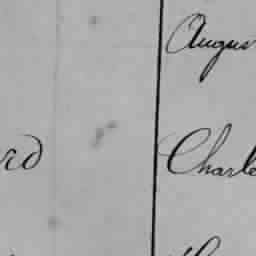 Augus
rd Charle